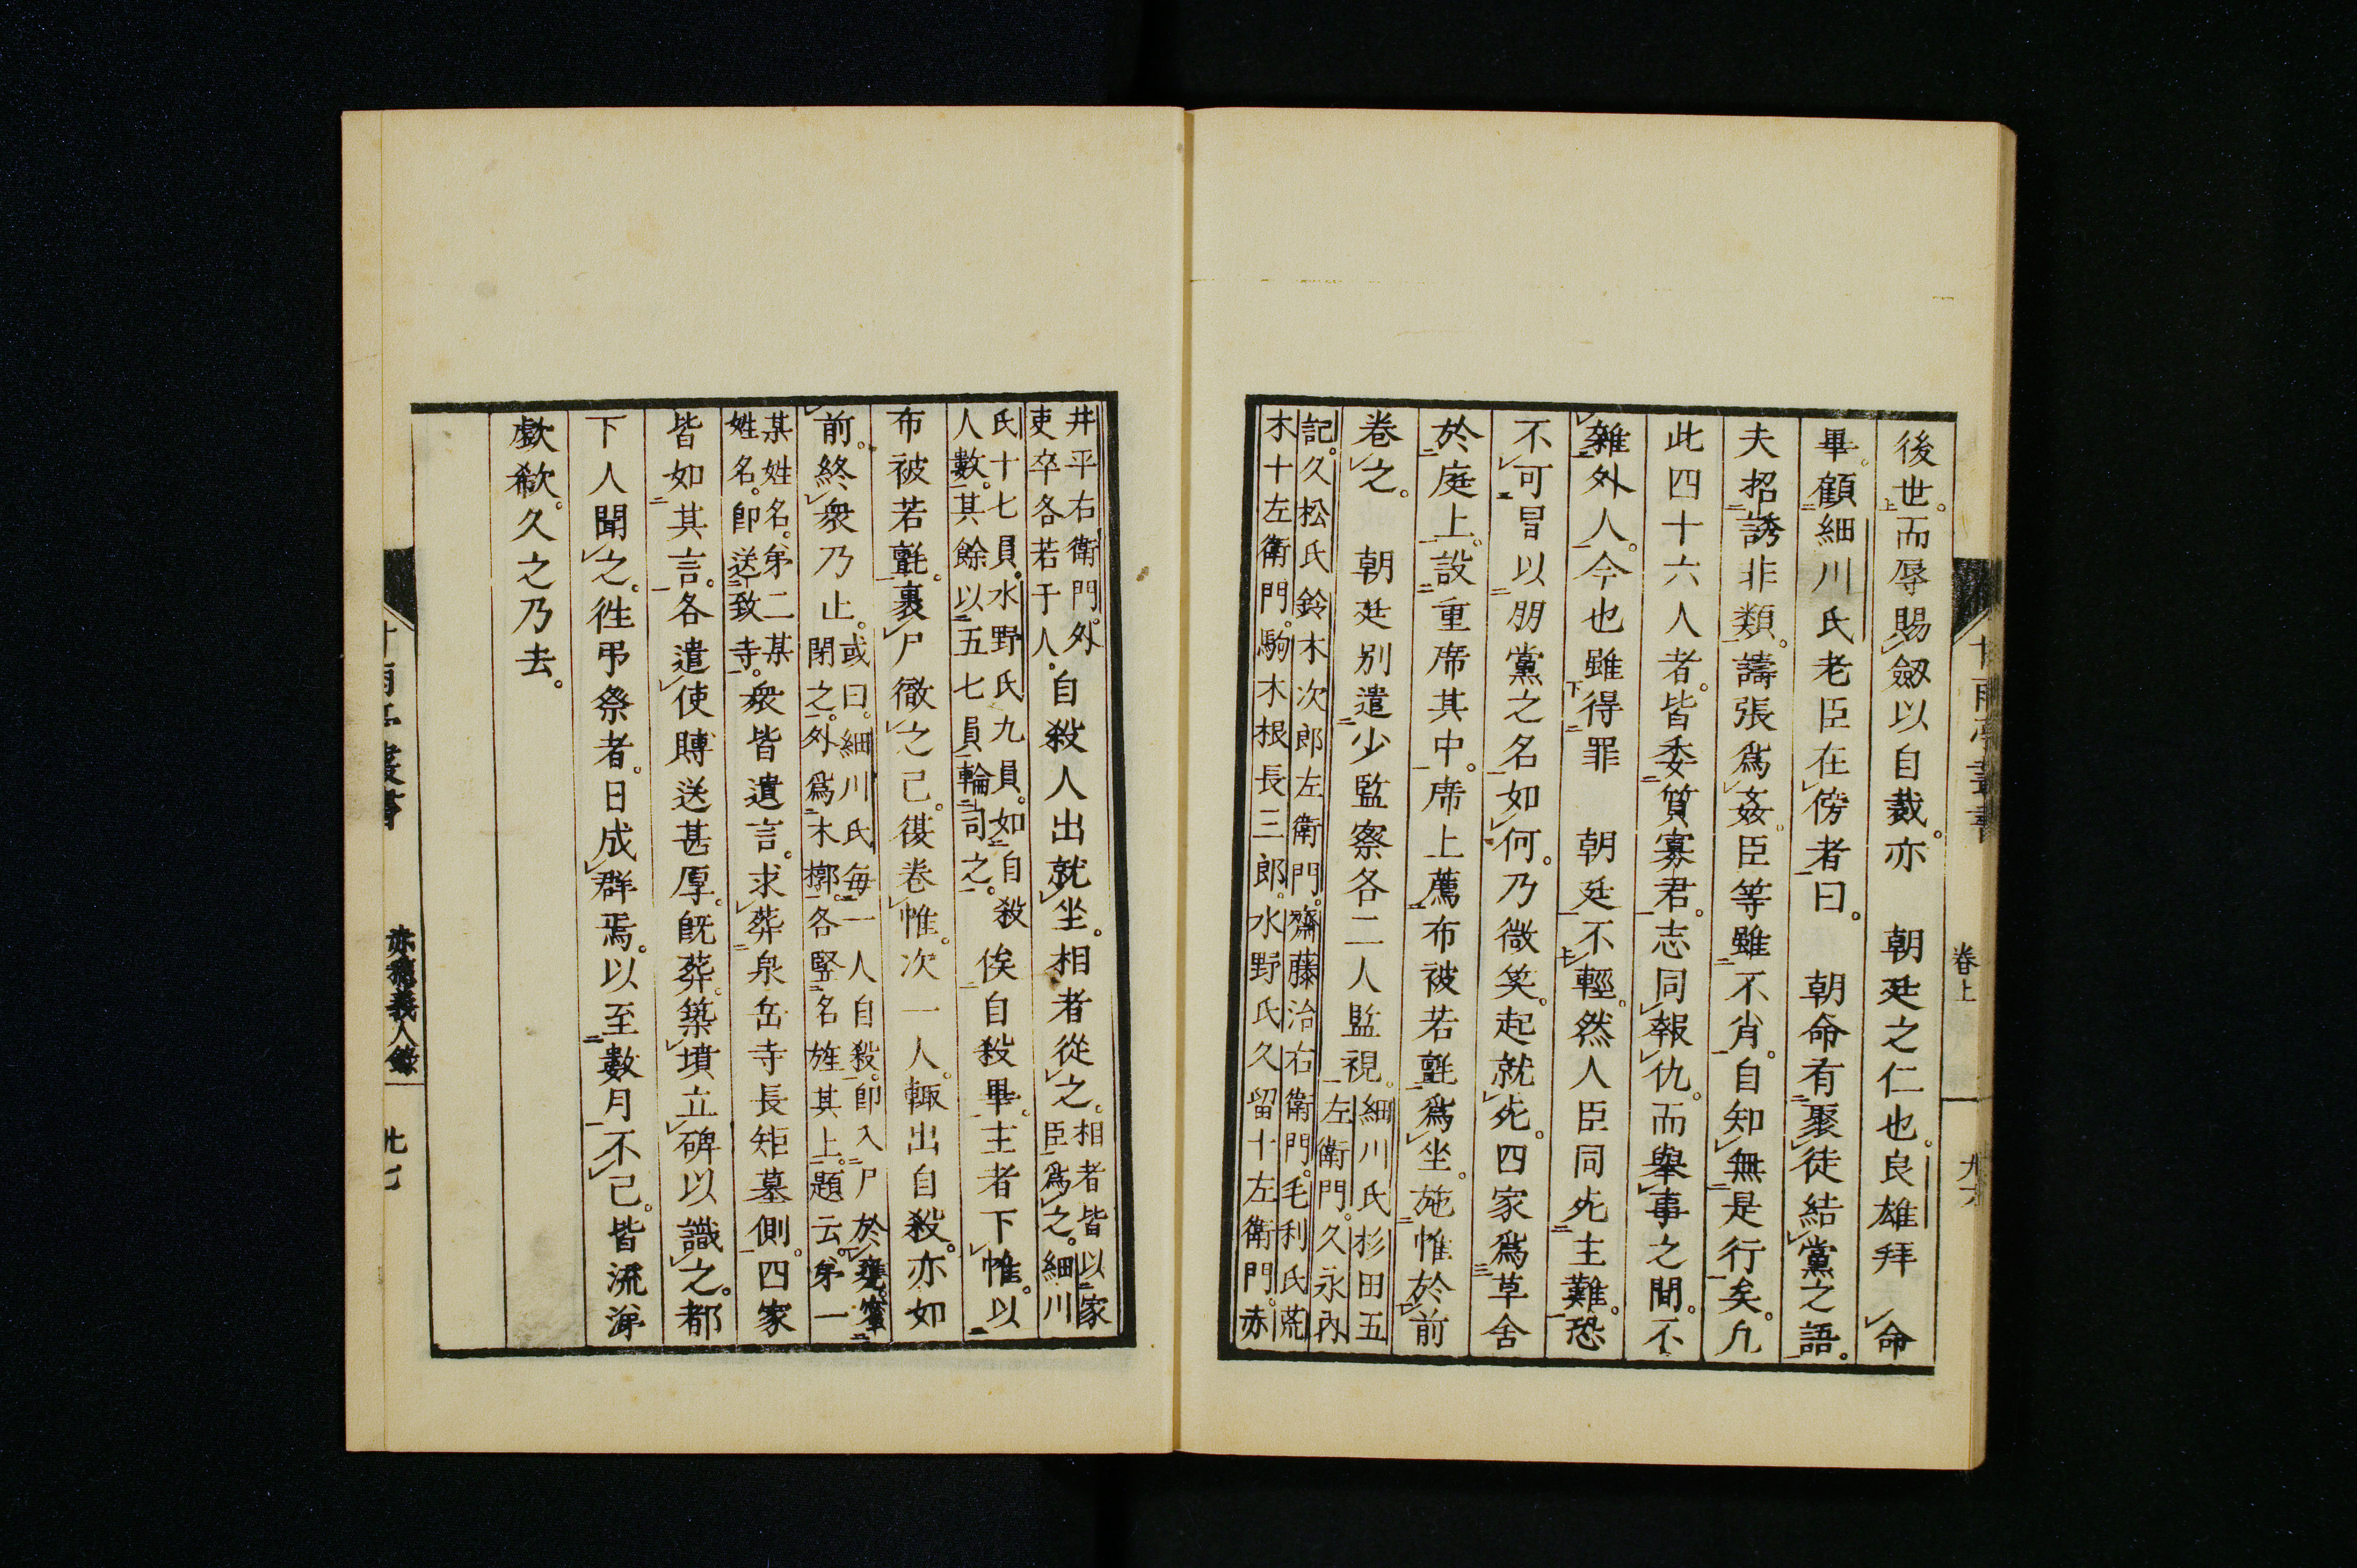 後世。而辱賜劔以自裁。亦　朝廷之仁也。良雄拜　命
畢。顧細川氏老臣在傍者曰。　朝命有聚徒結黨之語。
夫招誘非類。譸張爲姦。臣等雖不肖。自知無是行矣。凡
此四十六人者。皆委質寡君。志同報仇。而舉事之間。不
雜外人。今也雖得罪　朝廷不輕。然人臣同死主難。恐
不可冒以朋黨之名。如何。乃微笑。起就死。四家爲草舍
於庭上。設重席其中。席上薦布被若氈爲坐。施帷於前
卷之。　朝廷別遣少監察各二人監視。細川氏杉田五
左衛門。久永內
記。久松氏鈴木次郎左衛門。齋藤治右衛門。毛利氏荒
木十左衛門。駒木根長三郎。水野氏久留十左衛門。赤
井平右衛門。外
吏卒各若干人。自殺人出就坐。相者從之。相者皆以家
臣爲之。細川
氏十七員。水野氏九員。如自殺
人數。其餘以五七員輪司之。俟自殺畢。主者下帷。以
布被若氈。裹尸徹之已。復卷帷。次一人。輙出自殺。亦如
前。終衆乃止。或曰。細川氏每一人自殺。卽入尸於甕。
閉之。外爲木槨。各竪名旌其上。題云。第一
某姓名。第二某
姓名。卽送致寺。衆皆遺言。求葬泉岳寺長矩墓側。四家
皆如其言。各遣使賻送甚厚。旣葬。築墳立碑以識之。都
下人聞之。徃弔祭者。日成群焉。以至數月不已。皆流涕
歔欷。久之乃去。
甘雨亭叢書
卷上
甘雨亭叢書
赤穗義人錄